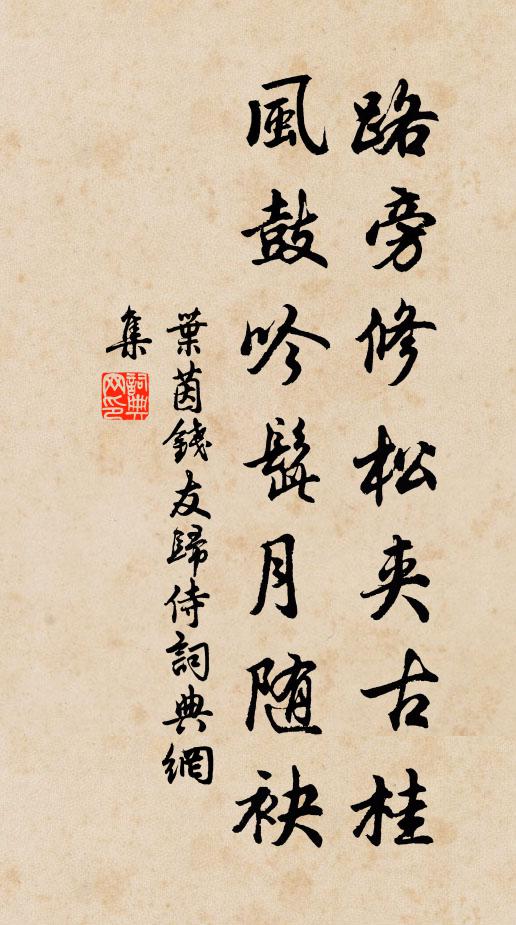 路旁修松夾古桂
風鼓吟髭月随袂
葉茵錢友歸侍詞典網
集
詞典
网印